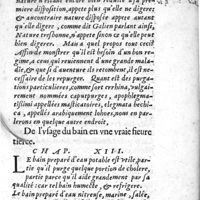 moindre disposition, appete plus qu'elle ne digere:
& au contraire nature disposée appete autant
qu'elle digere, comme dit Galien parlant ainsi,
Nature tresbonne n'appete sinon ce qu'elle peut
bien digerer. Mais à quel propos tout cecy?
Affin de monstrer qu'il est bon quelque fois à re-
ceux qui reuiennent d'une grande mala-
die, & que souuent aux ieunes ils retombent, il est ne-
cessaire de les repurger. Quant est des purga-
tions particulieres, comme sont errhina, vulgai-
rement nommées capupurgia, apophlegmatismi
appellées masticatoires, elegmata bechica,
appellées arabiquement lohocs, nous en parle-
rons en quelque autre endroit.
De l'vsage du bain en vne vraie fieure
tierce.
CHAP. XIII.
LE bain preparé d'eau potable est vtile, par-
tie qu'il purge quelque portion de cholere,
partie parce qu'il aide grandement par sa
qualité: car tel bain humecte, & refrigere.
Le bain preparé d'eau nitreuse, marine, salée,